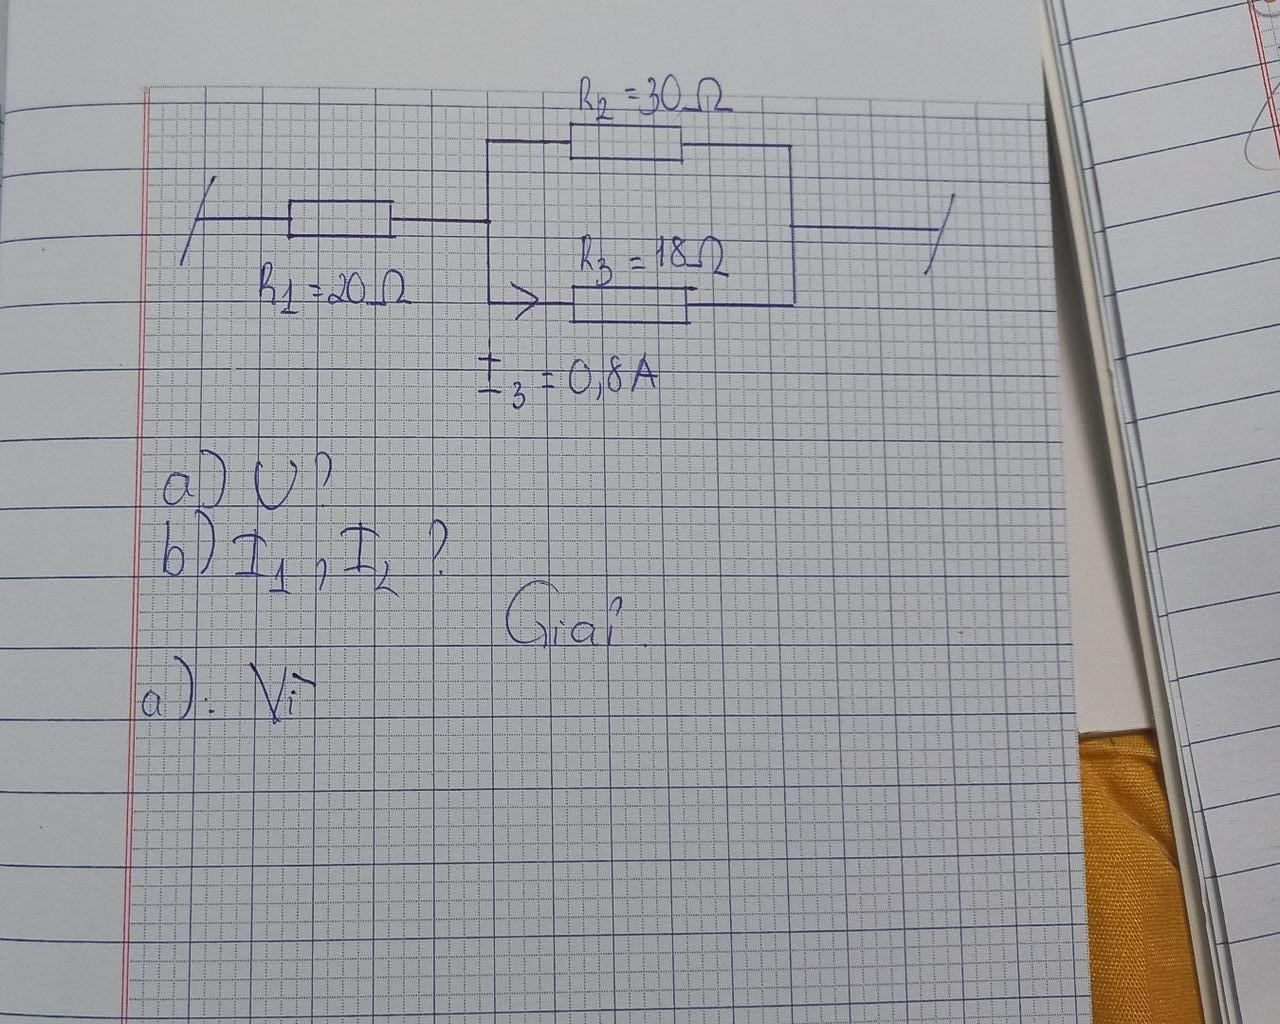 R₂ = 30Ω
R₁ = 20Ω
R₃ = 18Ω
I₃ = 0,8A
a) U?
b) I₁, I₂ ?
Giải
a): Vì